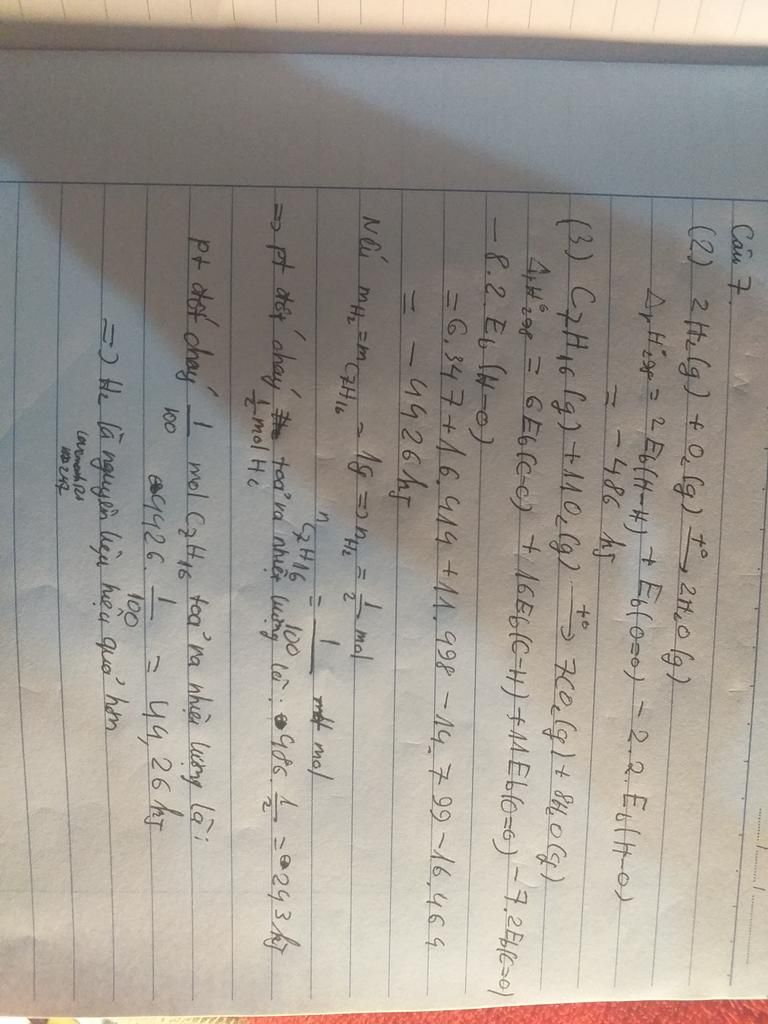 Câu 7.
(2) 2H₂(g) + O₂(g) →t° 2H₂O(g)
ΔrH°298 = 2Eb(H-H) + Eb(O=O) - 2.2.Eb(H-O)
= - 486 kJ
(3) C7H16(g) + 11O₂(g) →t° 7CO₂(g) + 8H₂O(g)
ΔrH°298 = 6Eb(C-C) + 16Eb(C-H) + 11Eb(O=O) - 7.2Eb(C=O)
- 8.2.Eb(H-O)
= 6.347 + 16.414 + 11.498 - 14.799 - 16.464
= - 4426 kJ
Nếu mH₂ = mC7H16 = 1g => nH₂ = 1/2 mol
nC7H16 = 1/100 mol
=> pt đốt cháy 1/2 mol H₂ toả ra nhiệt lượng là: 486.1/2 = 243 kJ
pt đốt cháy 1/100 mol C7H16 toả ra nhiệt lượng là:
4426.1/100 = 44,26 kJ
=> H₂ là nguyên liệu hiệu quả hơn